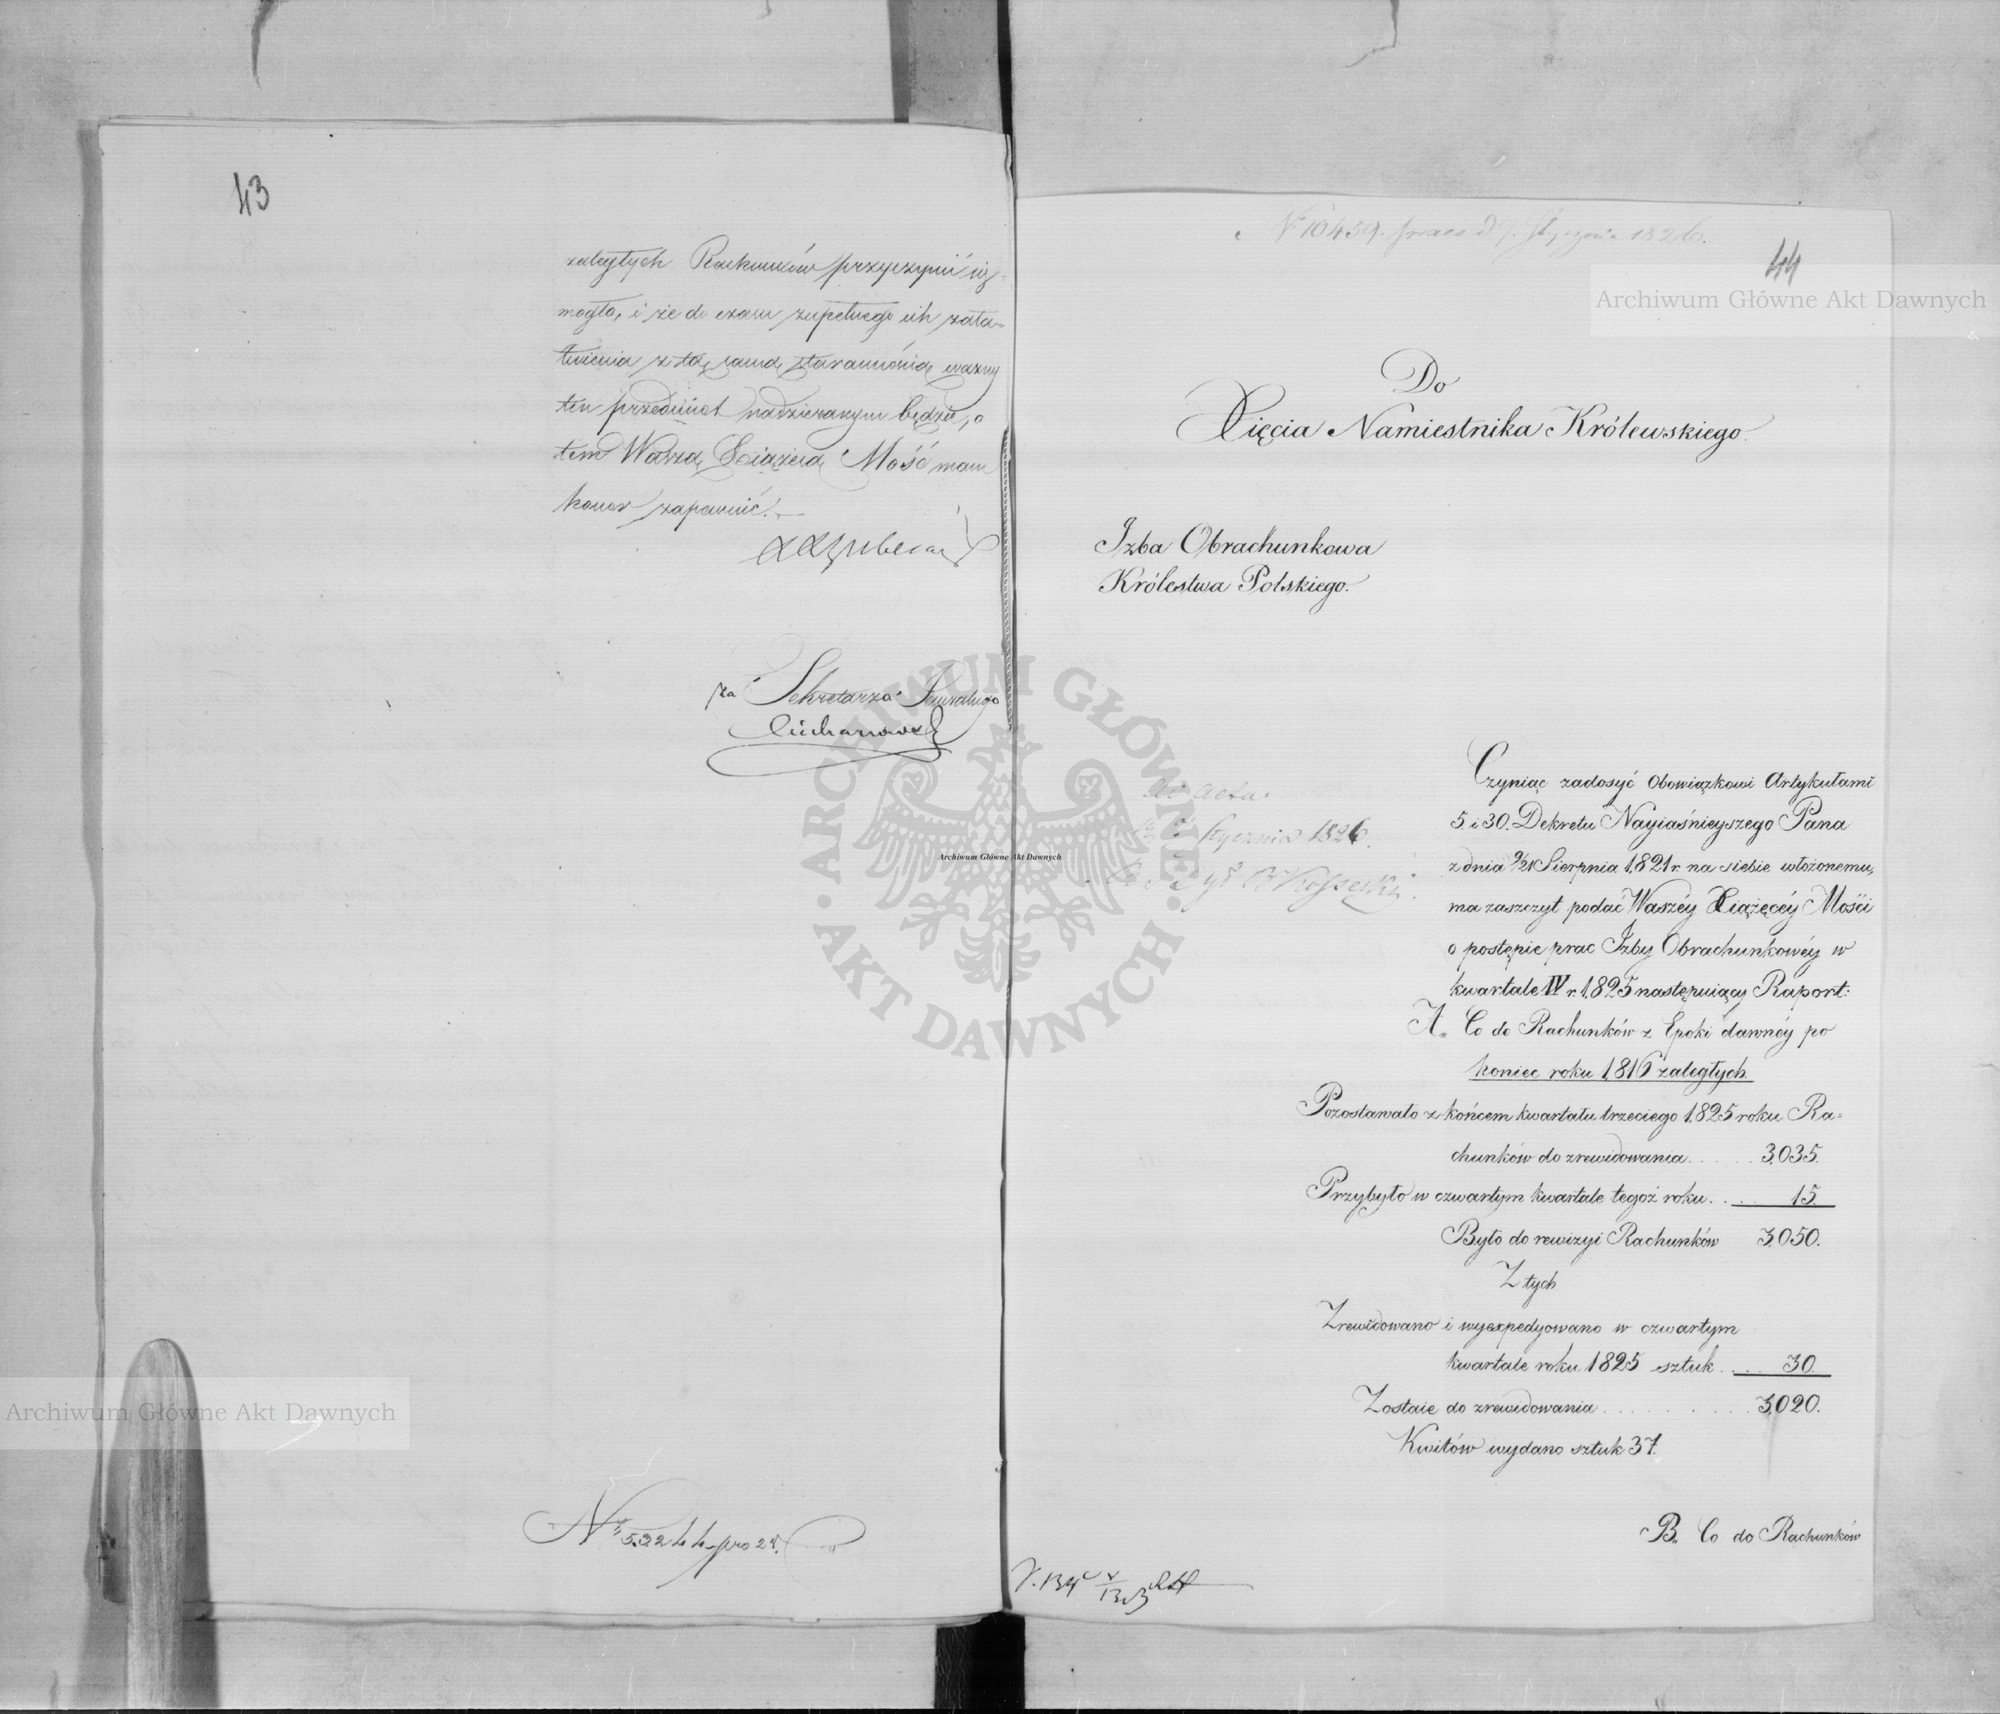 43
zaległych Rachunków przyczynić się
mogło, i że do czasu zupełnego ich zała-
twienia z tą samą starannością ważny
ten przedmiot nadzieranym będzie, o
tem Waszą Xiążęcą Mość mam
honor zapewnić.
za Sekretarza Jeneralnego
Nr 5322
N 10459. praes d 7. Stycznia 1826.
44
Do
Xięcia Namiestnika Królewskiego.
Izba Obrachunkowa
Królestwa Polskiego.
ad acta.
Stycznia 1826.
Czyniąc zadosyć obowiązkowi Artykułami
5. i 30. Dekretu Nayiaśnieyszego Pana
z dnia 9/21 Sierpnia 1821 r. na siebie włożonemu,
ma zaszczyt podać Waszéy Xiążęcéy Mości
o postępie prac Izby Obrachunkowéy w
kwartale IV r. 1825 następuiący Raport:
A„ Co do Rachunków z Epoki dawnéy po
koniec roku 1816 zaległych
Pozostawało z końcem kwartału trzeciego 1825 roku Ra=
chunków do zrewidowania . . . . . 3,035.
Przybyło w czwartym kwartale tegoż roku. . . . 15.
Było do rewizyi Rachunków 3,050.
Z tych
Zrewidowano i wyexpedyowano w czwartym
kwartale roku 1825 sztuk . . . . 30
Zostaie do zrewidowania . . . . . . . . . . 3,020.
Kwitów wydano sztuk 37.
B„ Co do Rachunków
Archiwum Główne Akt Dawnych
Archiwum Główne Akt Dawnych
Archiwum Główne Akt Dawnych
ARCHIWUM GŁÓWNE AKT DAWNYCH